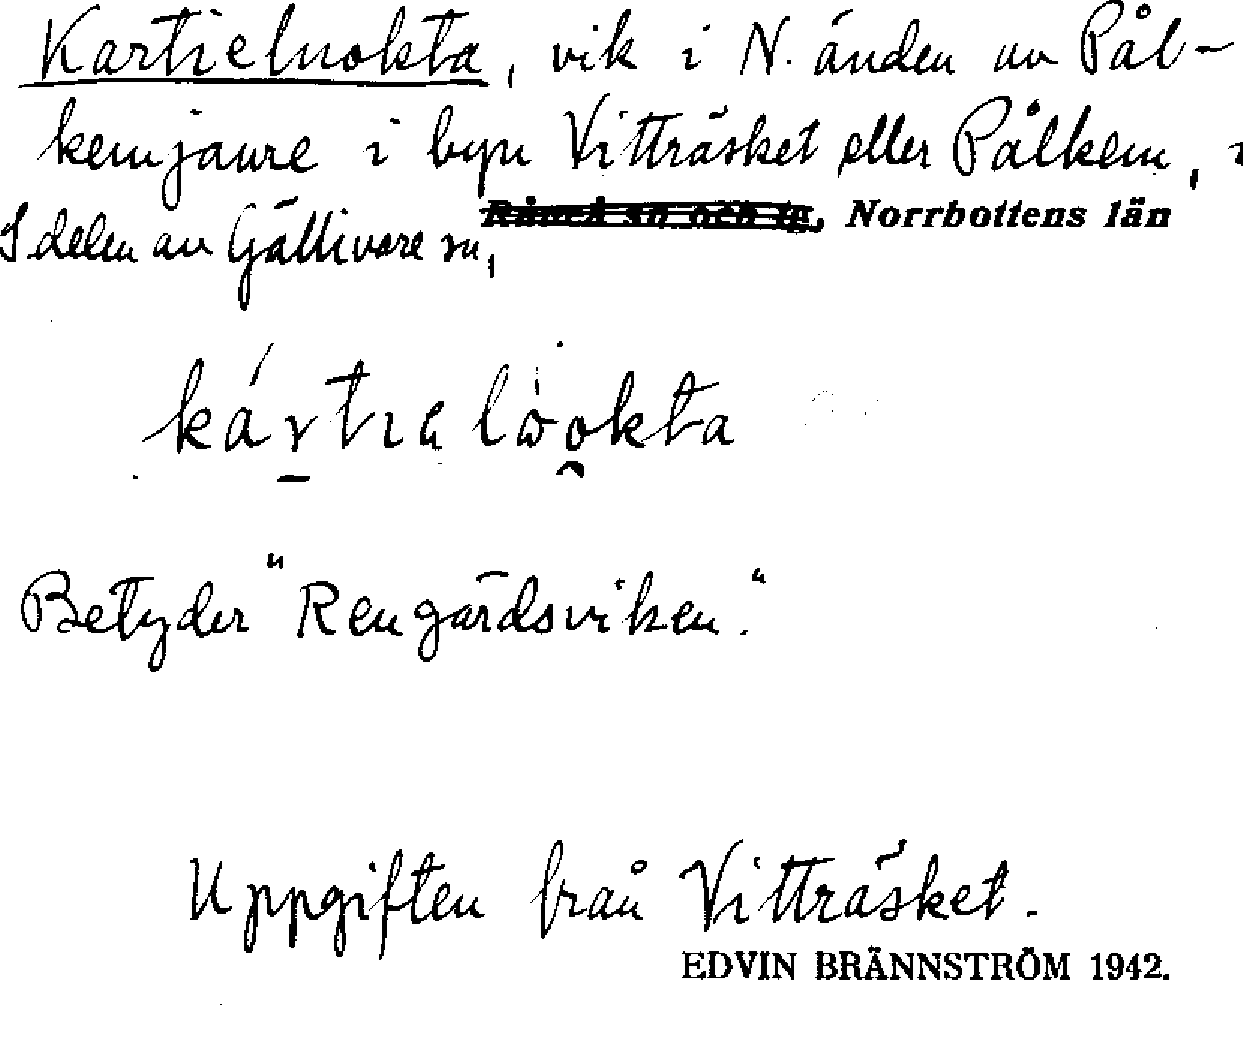 Kartieluokta, vik i N. änden av Pål-
kemjaure i byn Vitträsket eller Pålkem, i
S delen av Gällivare sn, Råneå sn och tg, Norrbottens län
kártıalòokta
Betyder "Rengärdsviken."
Uppgiften från Vitträsket.
EDVIN BRÄNNSTRÖM 1942.